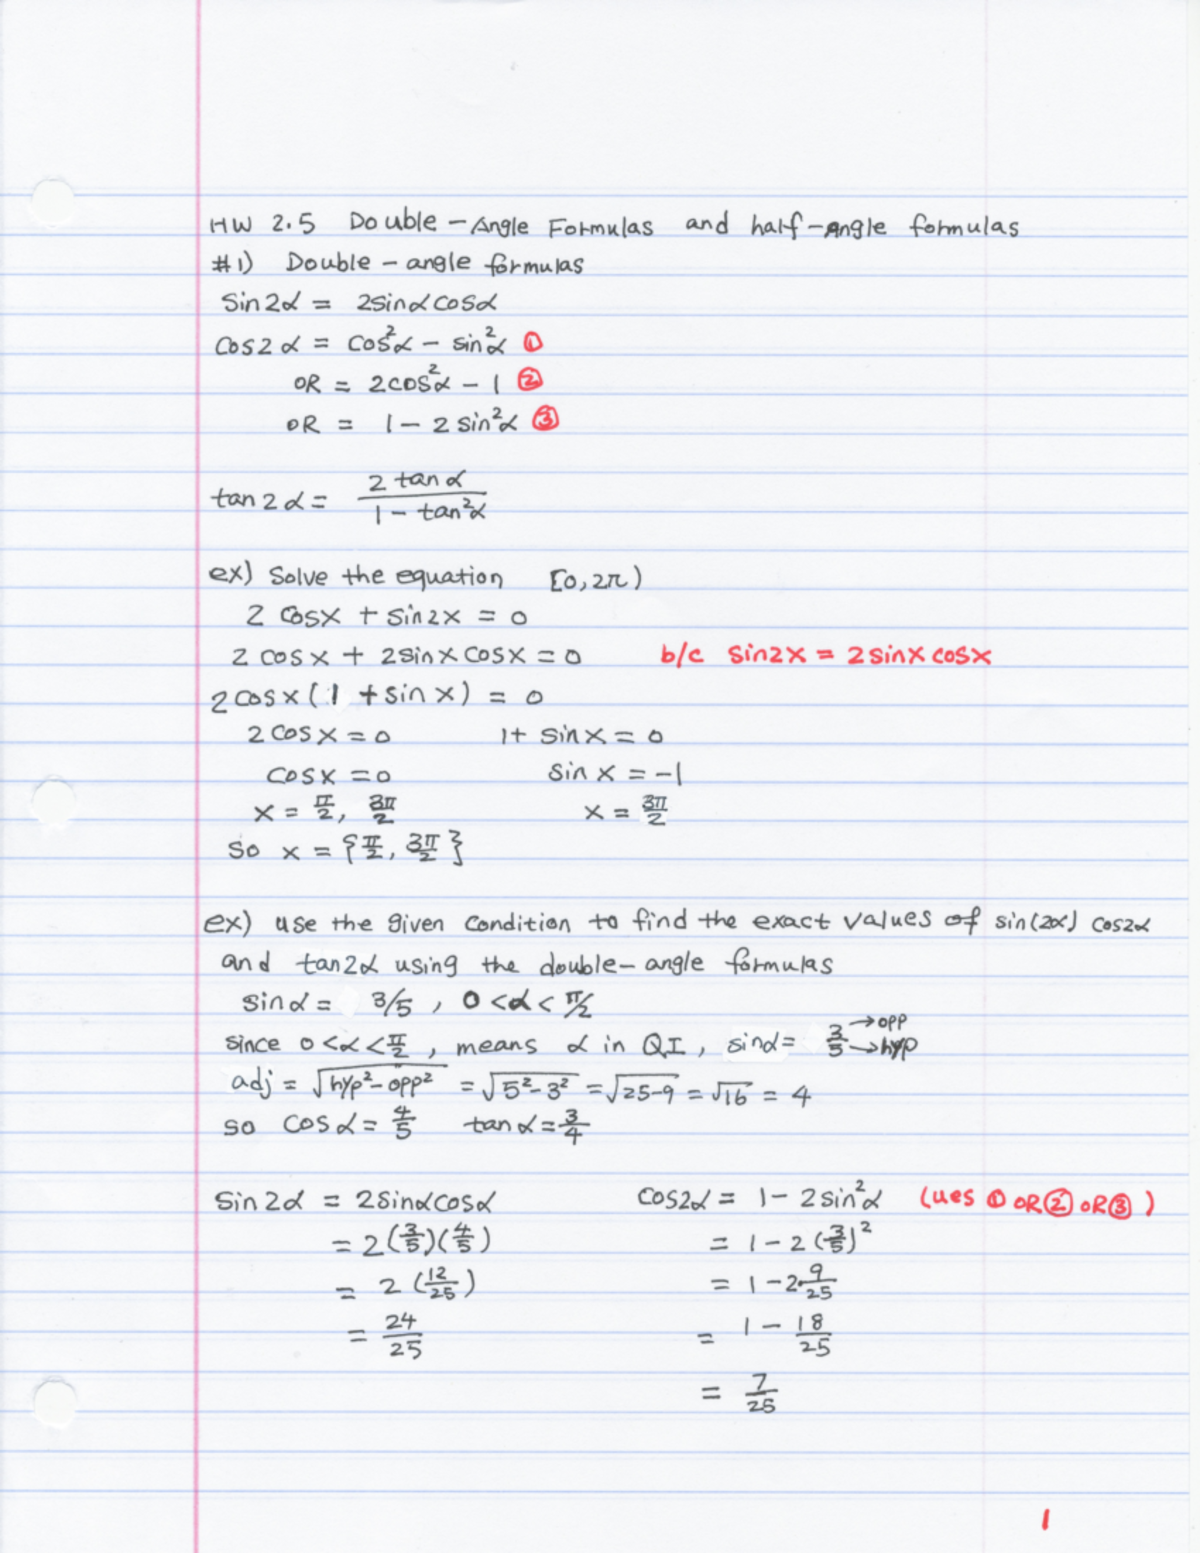 HW 2.5 Double-Angle Formulas and half-Angle formulas
#1) Double-angle formulas
sin2α = 2sinαcosα
cos2α = cos²α - sin²α ①
OR = 2cos²α - 1 ②
OR = 1 - 2sin²α ③
tan2α = 2tanα / (1 - tan²α)
ex) Solve the equation [0, 2π)
2 cosx + sin2x = 0
2 cosx + 2sinx cosx = 0 b/c sin2x = 2sinx cosx
2cosx(1 + sinx) = 0
2cosx = 0 1+ sinx = 0
cosx = 0 sinx = -1
x = π/2, 3π/2 x = 3π/2
so x = {π/2, 3π/2}
ex) use the given condition to find the exact values of sin(2α) cos2α
and tan2α using the double-angle formulas
sinα = 3/5 , 0<α<π/2
since 0<α<π/2 , means α in QI, sinα = 3/5 →opp →hyp
adj = √(hyp²-opp²) = √(5²-3²) = √(25-9) = √16 = 4
so cosα = 4/5 tanα = 3/4
sin2α = 2sinαcosα cos2α = 1 - 2sin²α (ues ① OR ② OR ③)
= 2(3/5)(4/5) = 1 - 2(3/5)²
= 2(12/25) = 1 - 2·9/25
= 24/25 = 1 - 18/25
= 7/25
1